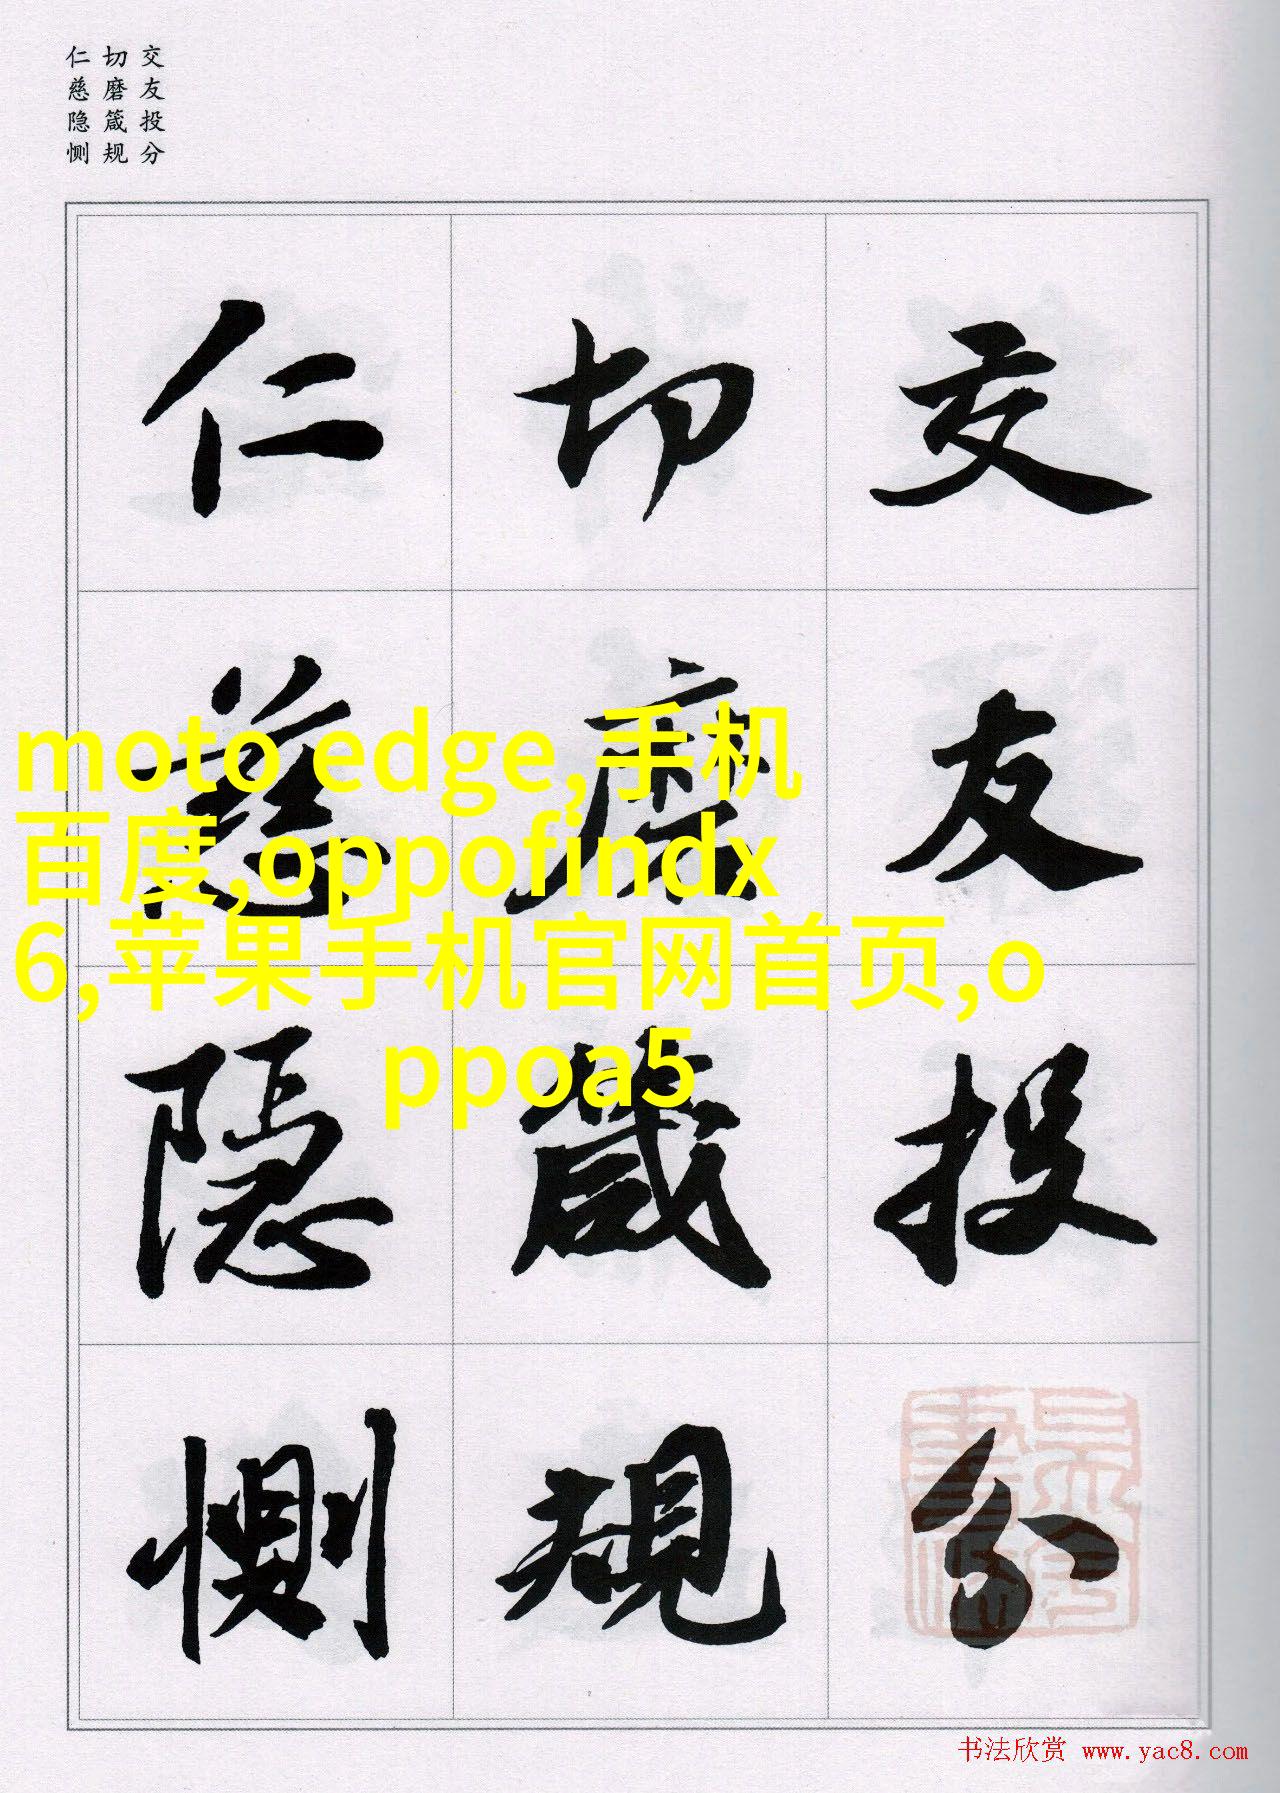 交友投分
切磨箴规
仁慈隐恻
交友投分
切磨箴規
仁慈隐惻
moto edge,手机
百度,oppofindx
6,苹果手机官网首页,o
ppoa5
书法欣赏 www.yac8.com